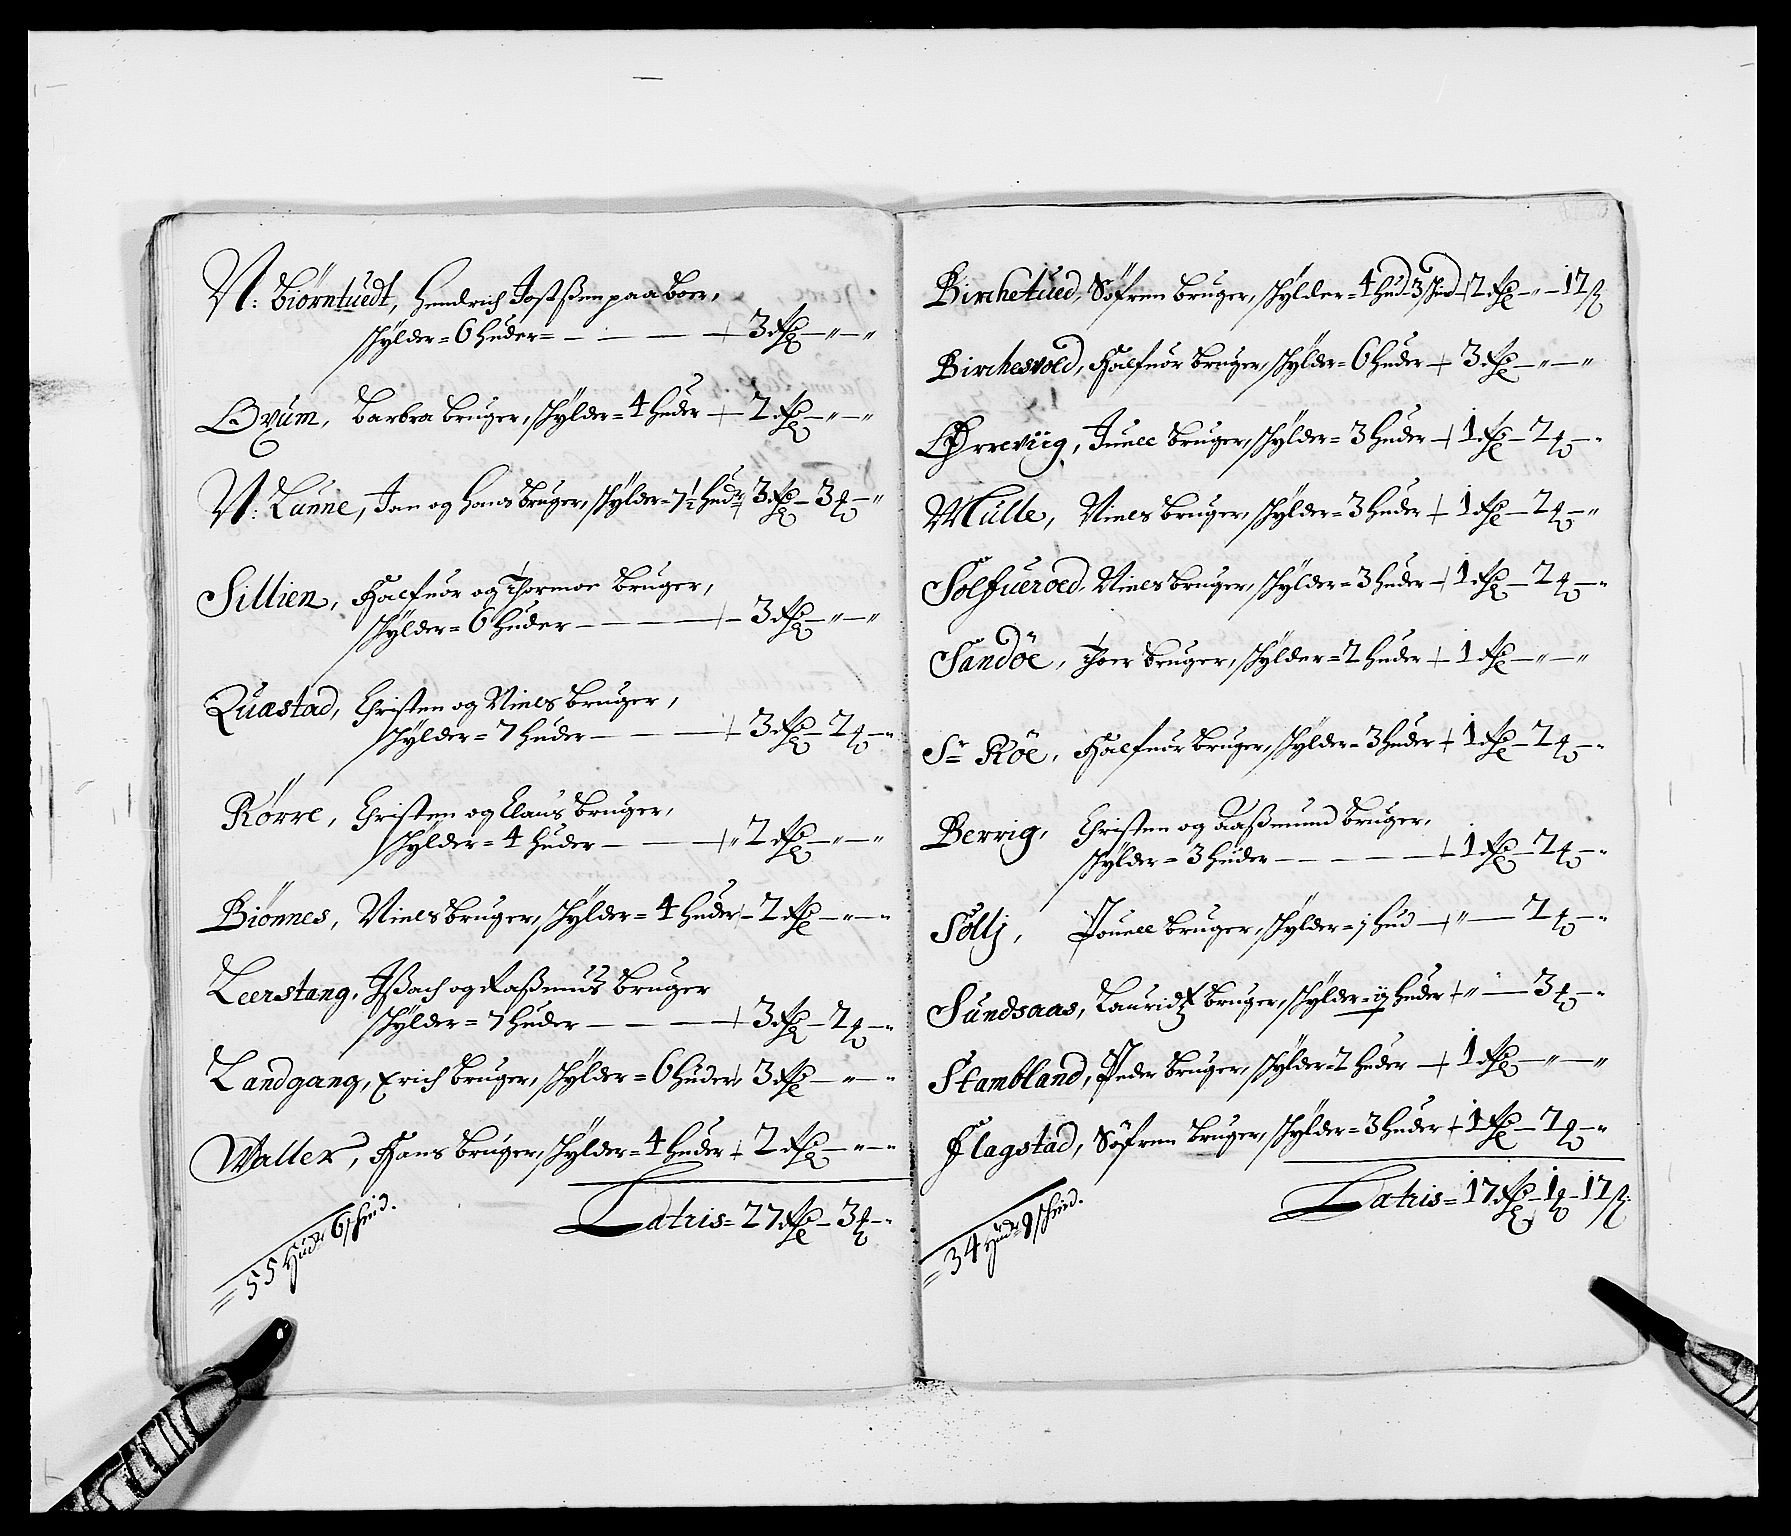 N: Biörntuedt, Hendrich Jostßen paaboer,
schÿlder = 6 huder = — · — — + 3 Rdr — " — "
Oxum, Barbra bruger, schÿlder = 4 huder + 2 Rdr — " — "
N: Lunne, Jan og Hans bruger, schÿlder = 7½ hudr + 3 Rdr — 3 ort — "
Sillien, Halfuor og Thormoe bruger,
schÿlder = 6 huder — — — + 3 Rdr — " — "
Quastad, Christen og Niels bruger,
schÿlder = 7 huder — — — + 3 Rdr — 2 ort — "
Rørre, Christen og Claus bruger,
schÿlder = 4 huder — — + " 2 Rdr — " — "
Biönnes, Niels bruger, schÿlder = 4 huder + 2 Rdr — " — "
Leerstang, Jßach og Raßmus bruger
schÿlder = 7 huder — — — + 3 Rdr — 2 ort — "
Landgang, Erich bruger, schÿlder = 6 huder + 3 Rdr — " — "
Waller, Hans bruger, schÿlder = 4 huder + 2 Rdr — " — "
Latris = 27 Rdr — 3 ort — "
= 55 Hudr 6 schind.
Birchetued, Söfren bruger, schÿlder = 4 hud 3 schind + 2 Rdr — " — 12 ß
Birchesvold, Halfuor bruger, schÿlder = 6 huder + 3 Rdr — " — "
Ørreviig, Juell bruger, schÿlder = 3 huder + 1 Rdr — 2 ort — "
Mülle, Niels bruger, schÿlder = 3 huder + 1 Rdr — 2 ort — "
Solfueroed, Niels bruger, schÿlder = 3 huder + 1 Rdr — 2 ort — "
Sandöe, Thoer bruger, schÿlder = 2 huder + 1 Rdr — " — "
Sr Röe, Halfuor bruger, schÿlder = 3 huder + 1 Rdr — 2 ort — "
Berrig, Christen og Aaßmund bruger,
schÿlder = 3 huder — — — — + 1 Rdr — 2 ort — "
Söllj, Pouell bruger, schÿlder = j hud + " — 2 ort — "
Sundsaas, Lauridtz bruger, schÿlder = huder + " — 3 ort — "
Stambland, Peder bruger, schÿlder = 2 huder + 1 Rdr — " — "
Flagstad, Söfren bruger, schÿlder = 3 huder + 1 Rdr — 2 ort — "
Latris = 17 Rdr — 1 ort — 12 ß
= 34 Hudr 9 schind.